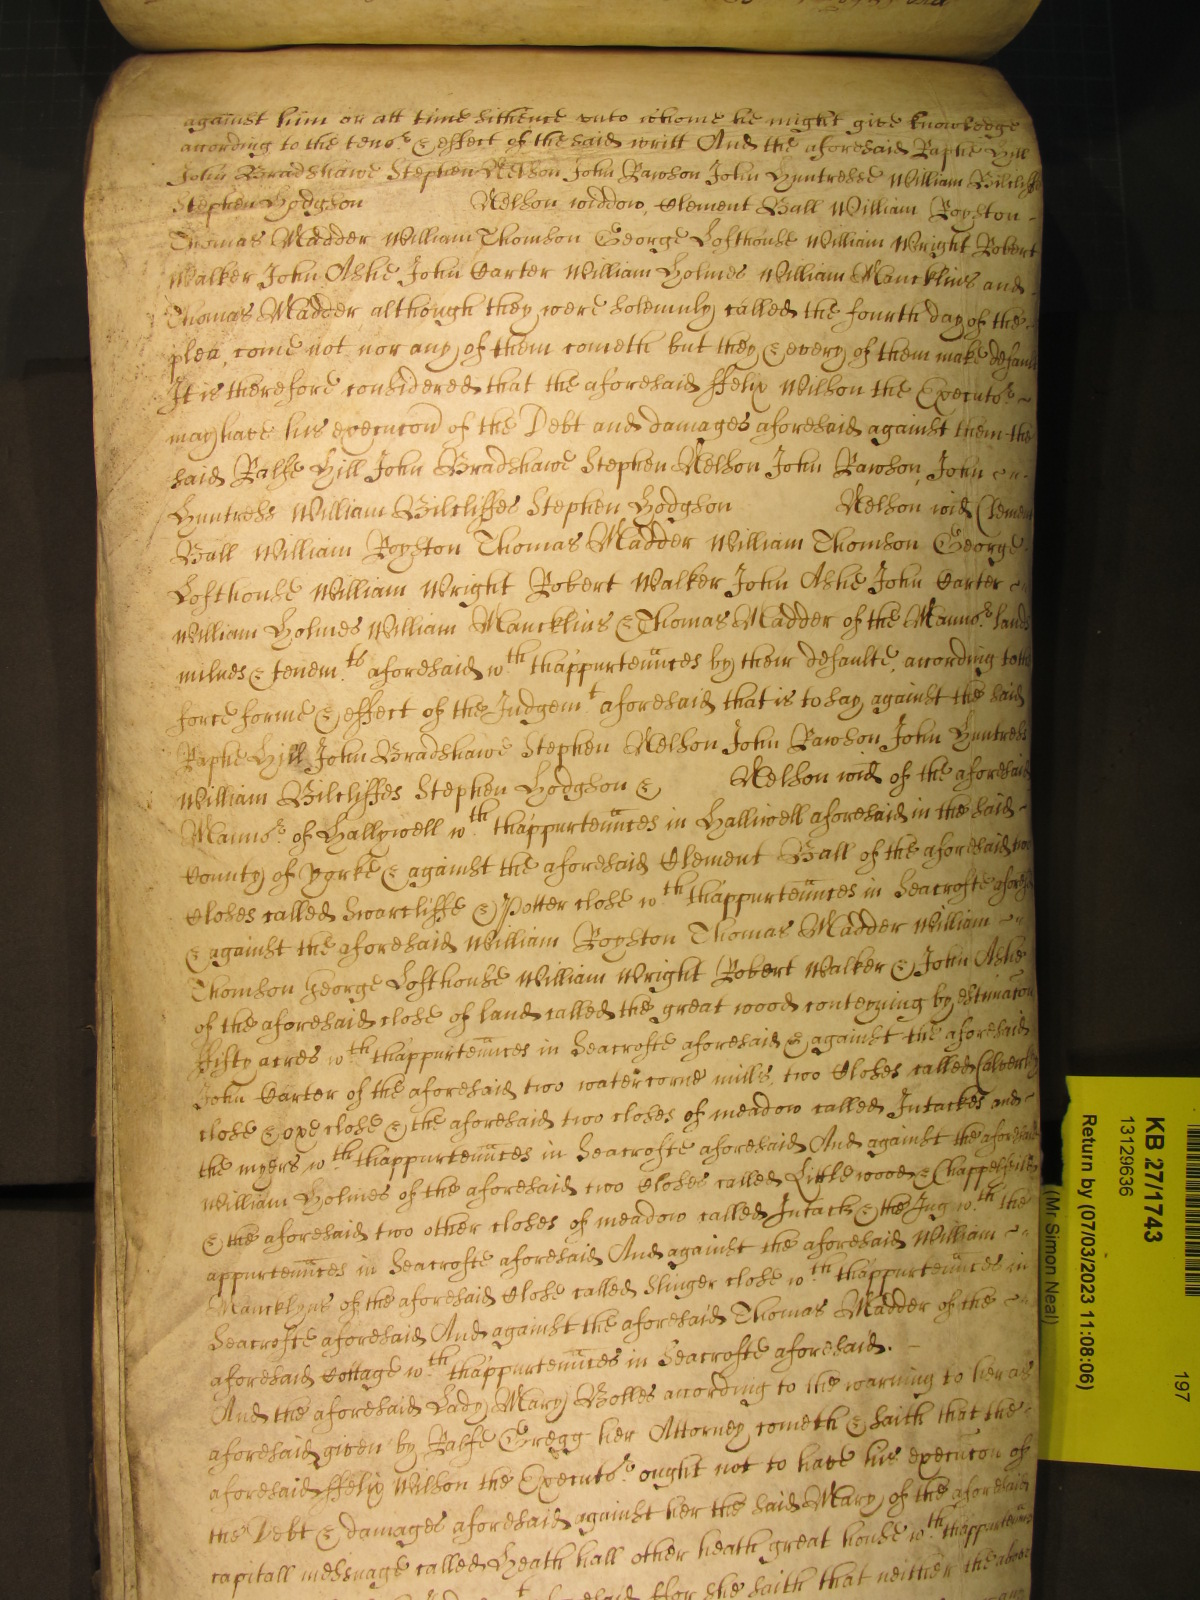 against him or att time sithence unto whome he might give knowledge
according to the tenor & effect of the said writt And the aforesaid Raphe Hill
John Bradshawe Stephen Nelson John Rawson John Huntresse William Bilcliffe
Stephen Hodgson Nelson widdow, Clement Ball William Royston
Thomas Madder William Thomson George Lofthouse William Wright Robert
Walker John Ashe John Carter William Holmes William Mancklins and
Thomas Madder although they were solemnly called the fourth day of the
plea, come not nor any of them cometh but they & every of them make default
It is therefore considered that the aforesaid ffelix Wilson the Executor
may have his execucon of the Debt and damages aforesaid against them the
said Ralfe Hill John Bradshawe Stephen Nelson John Rawson, John
Huntress William Bilcliffes Stephen Hodgson Nelson wid Clement
Ball William Royston Thomas Madder William Thomson George
Lofthouse William Wright Robert Walker John Ashe John Carter
William Holmes William Mancklins & Thomas Madder of the Mannor lands
milnes & tenemts aforesaid wth thappurtennces by their defaulte, according to the
force forme & effect of the Judgemt aforesaid that is to say against the said
Raphe Hill John Bradshawe Stephen Nelson John Rawson John Huntress
William Bilcliffes Stephen Hodgson & Nelson wid of the aforesaid
Mannor of Hallywell wth thappurtennces in Halliwell aforesaid in the said
County of Yorke & against the aforesaid Clement Ball of the aforesaid two
Closes called Swarcliffe & Potter close wth thappurtennces in Seacrofte aforesd
& against the aforesaid William Royston Thomas Madder William
Thomson George Lofthouse William Wright Robert Walker & John Ashe
of the aforesaid close of land called the great wood conteyning by estimacon
ffifty acres wth thappurtennces in Seacrofte aforesaid & against the aforesaid
John Carter of the aforesaid two water corne mills, two Closes called Calverley
close & oxe close & the aforesaid two closes of meadow called Intackes and
the myers wth thappurtennces in Seacrofte aforesaid And against the aforesaid
William Holmes of the aforesaid two Closes called Little wood & Chappelfeild
& the aforesaid two other closes of meadow called Intack & the Ing wth the
appurtennces in Seacrofte aforesaid And against the aforesaid William
Mancklyns of the aforesaid Close called Slinger close wth thappurtennces in
Seacrofte aforesaid And against the aforesaid Thomas Madder of the
aforesaid Cottage wth thappurtennces in Seacrofte aforesaid.
And the aforesaid Lady Mary Bolles according to the warning to her as
aforesaid given by Ralfe Gregg her Attorney cometh & saith that the
aforesaid ffelix Wilson the Executor ought not to have his execucon of
the Debt & damages aforesaid against her the said Mary of the aforesaid
capitall messuage called Heath hall other heath great house wth thappurtennces
aforesaid ffor she saith that neither the above
KB 27/1743
13129636
Return by (07/03/2023 11:08:06)
(Mr Simon Neal)
197